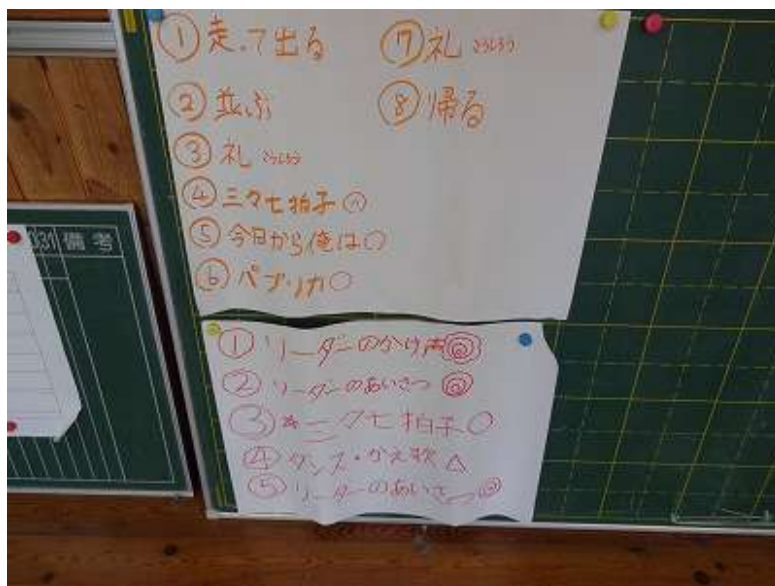 ①走って出る
②並ぶ
③礼 こうしろう
④三々七拍子
⑤今日から俺は○
⑥パプリカ○
⑦礼 こうしろう
⑧帰る
①リーダーのかけ声◎
②リーダーのあいさつ◎
③三々七拍子○
④ダンス・かえ歌△
⑤リーダーのあいさつ◎
031 備考